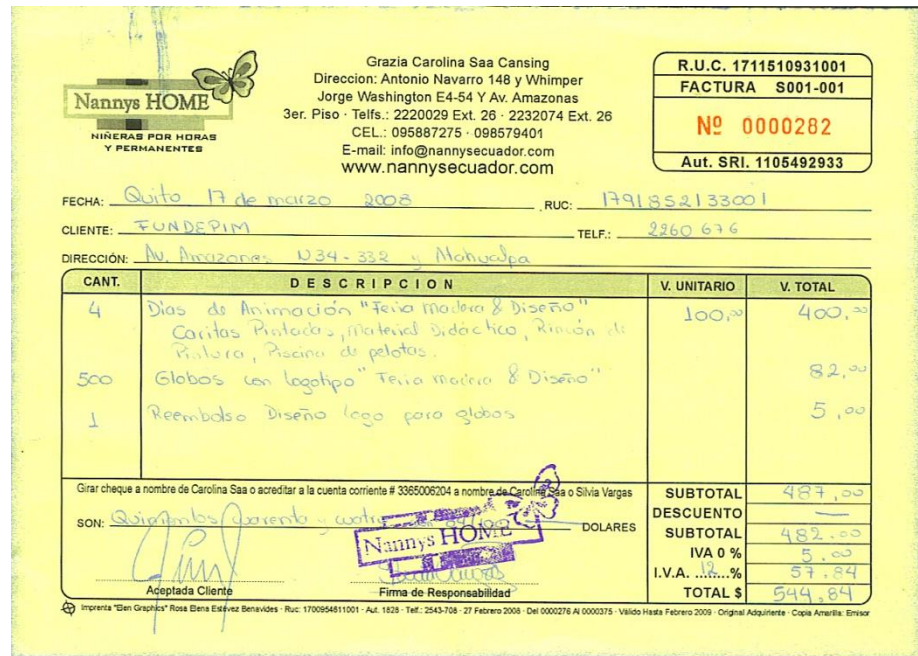 Nannys HOME
NIÑERAS POR HORAS
Y PERMANENTES
Grazia Carolina Saa Cansing
Direccion: Antonio Navarro 148 y Whimper
Jorge Washington E4-54 Y Av. Amazonas
3er. Piso · Telfs.: 2220029 Ext. 26 · 2232074 Ext. 26
CEL.: 095887275 · 098579401
E-mail: info@nannysecuador.com
www.nannysecuador.com
R.U.C. 1711510931001
FACTURA S001-001
Nº 0000282
Aut. SRI. 1105492933
FECHA: Quito 17 de marzo 2008 RUC: 1791852133001
CLIENTE: FUNDEPIM TELF.: 2260676
DIRECCIÓN: Av. Amazonas N34-332 y Atahualpa
CANT. DESCRIPCION V. UNITARIO V. TOTAL
4 Días de Animación "Feria Madera & Diseño" 100,00 400,00
Caritas Pintadas, Material Didáctico, Rincón de
Pintura, Piscina de pelotas.
500 Globos con logotipo "Feria Madera & Diseño" 82,00
1 Reembolso Diseño logo para globos 5,00
Girar cheque a nombre de Carolina Saa o acreditar a la cuenta corriente # 3365006204 a nombre de Carolina Saa o Silvia Vargas
SON: Quinientos cuarenta y cuatro 84/100 DOLARES
Nannys HOME
Aceptada Cliente Firma de Responsabilidad
SUBTOTAL 487,00
DESCUENTO —
SUBTOTAL 482.00
IVA 0 % 5.00
I.V.A. 12 % 57.84
TOTAL $ 544.84
Imprenta "Elen Graphics" Rosa Elena Estévez Benavides · Ruc: 1700954811001 · Aut. 1828 · Telf.: 2543-708 · 27 Febrero 2008 · Del 0000276 Al 0000375 · Válido Hasta Febrero 2009 · Original Adquiriente · Copia Amarilla: Emisor